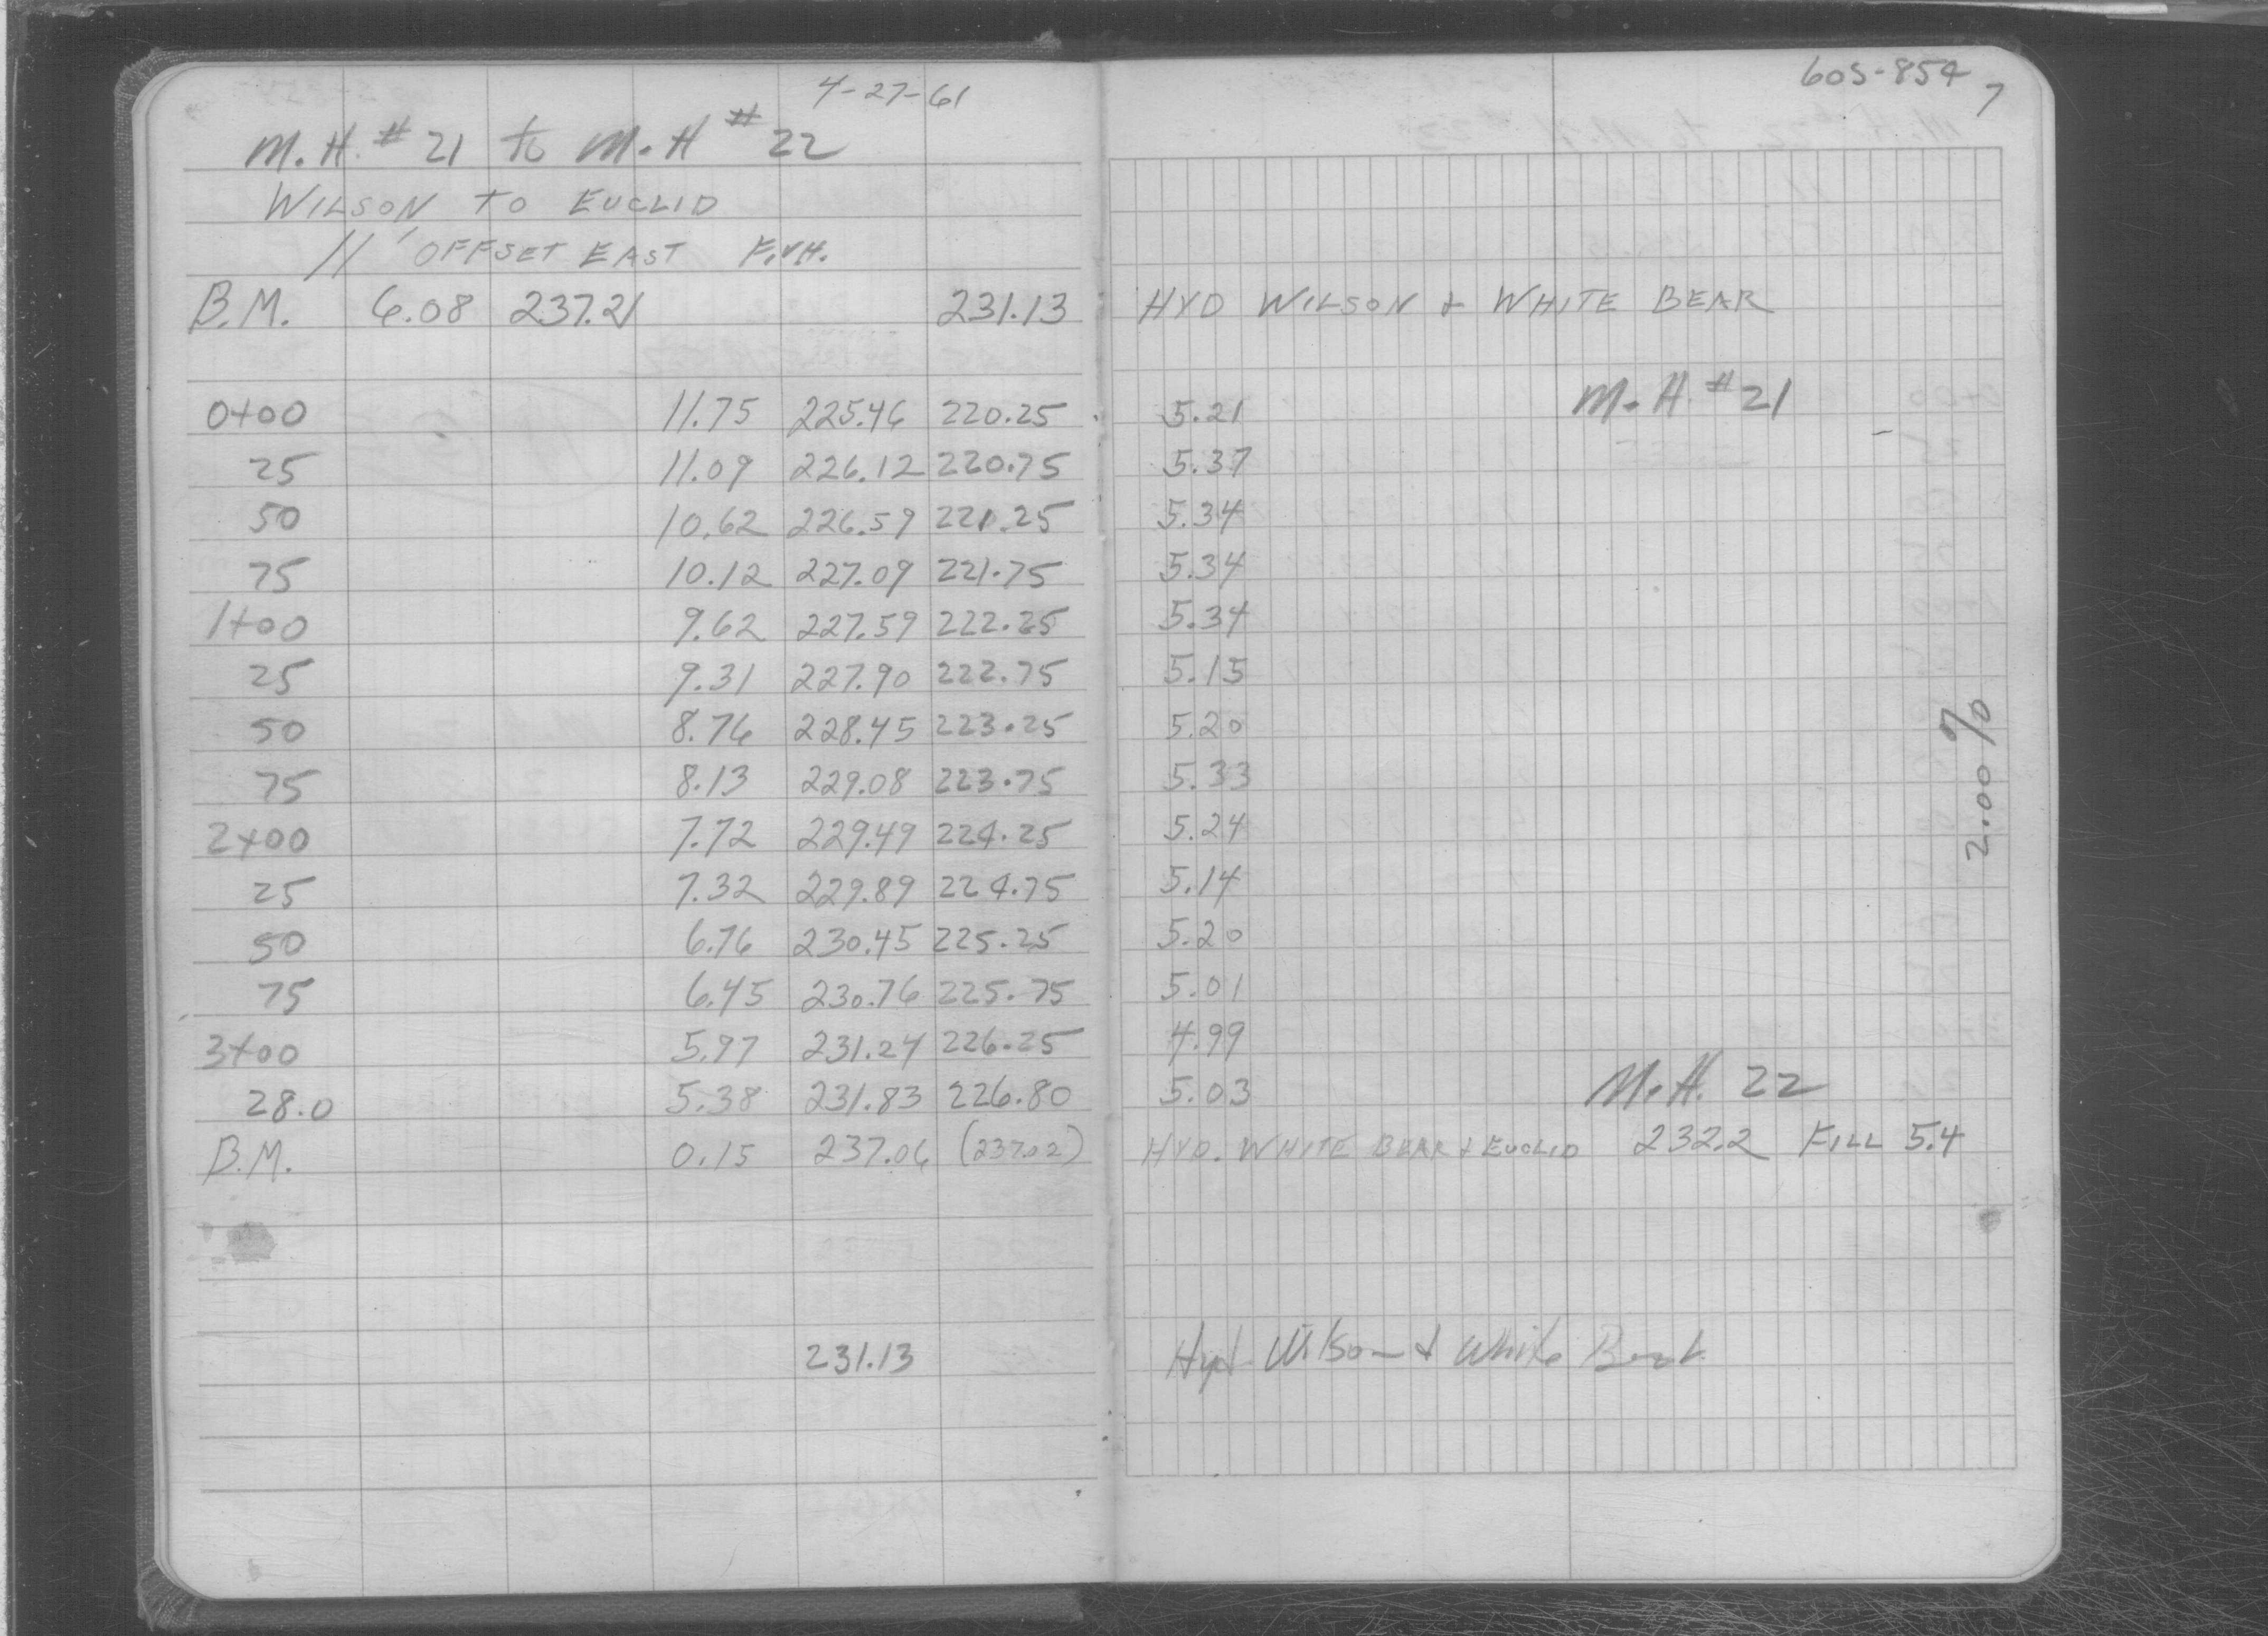 4-27-61
M.H. # 21 to M.H # 22
WILSON TO EUCLID
11' OFFSET EAST
B.M. 6.08 237.21 231.13
0+00 11.75 225.46 220.25
25 11.09 226.12 220.75
50 10.62 226.59 221.25
75 10.12 227.09 221.75
1+00 9.62 227.59 222.25
25 9.31 227.90 222.75
50 8.76 228.45 223.25
75 8.13 229.08 223.75
2+00 7.72 229.49 224.25
25 7.32 229.89 224.75
50 6.76 230.45 225.25
75 6.45 230.76 225.75
3+00 5.97 231.24 226.25
28.0 5.38 231.83 226.80
B.M. 0.15 237.06 (237.02)
231.13
605-854
7
HYD WILSON & WHITE BEAR
5.21 M.H #21
5.37
5.34
5.34
5.34
5.15
5.20
5.33
5.24
5.14
5.20
5.01
4.99
5.03 M.H. 22
2.00 %
HYD. WHITE BEAR & EUCLID 232.2 FILL 5.4
Hyd Wilson & White Bear